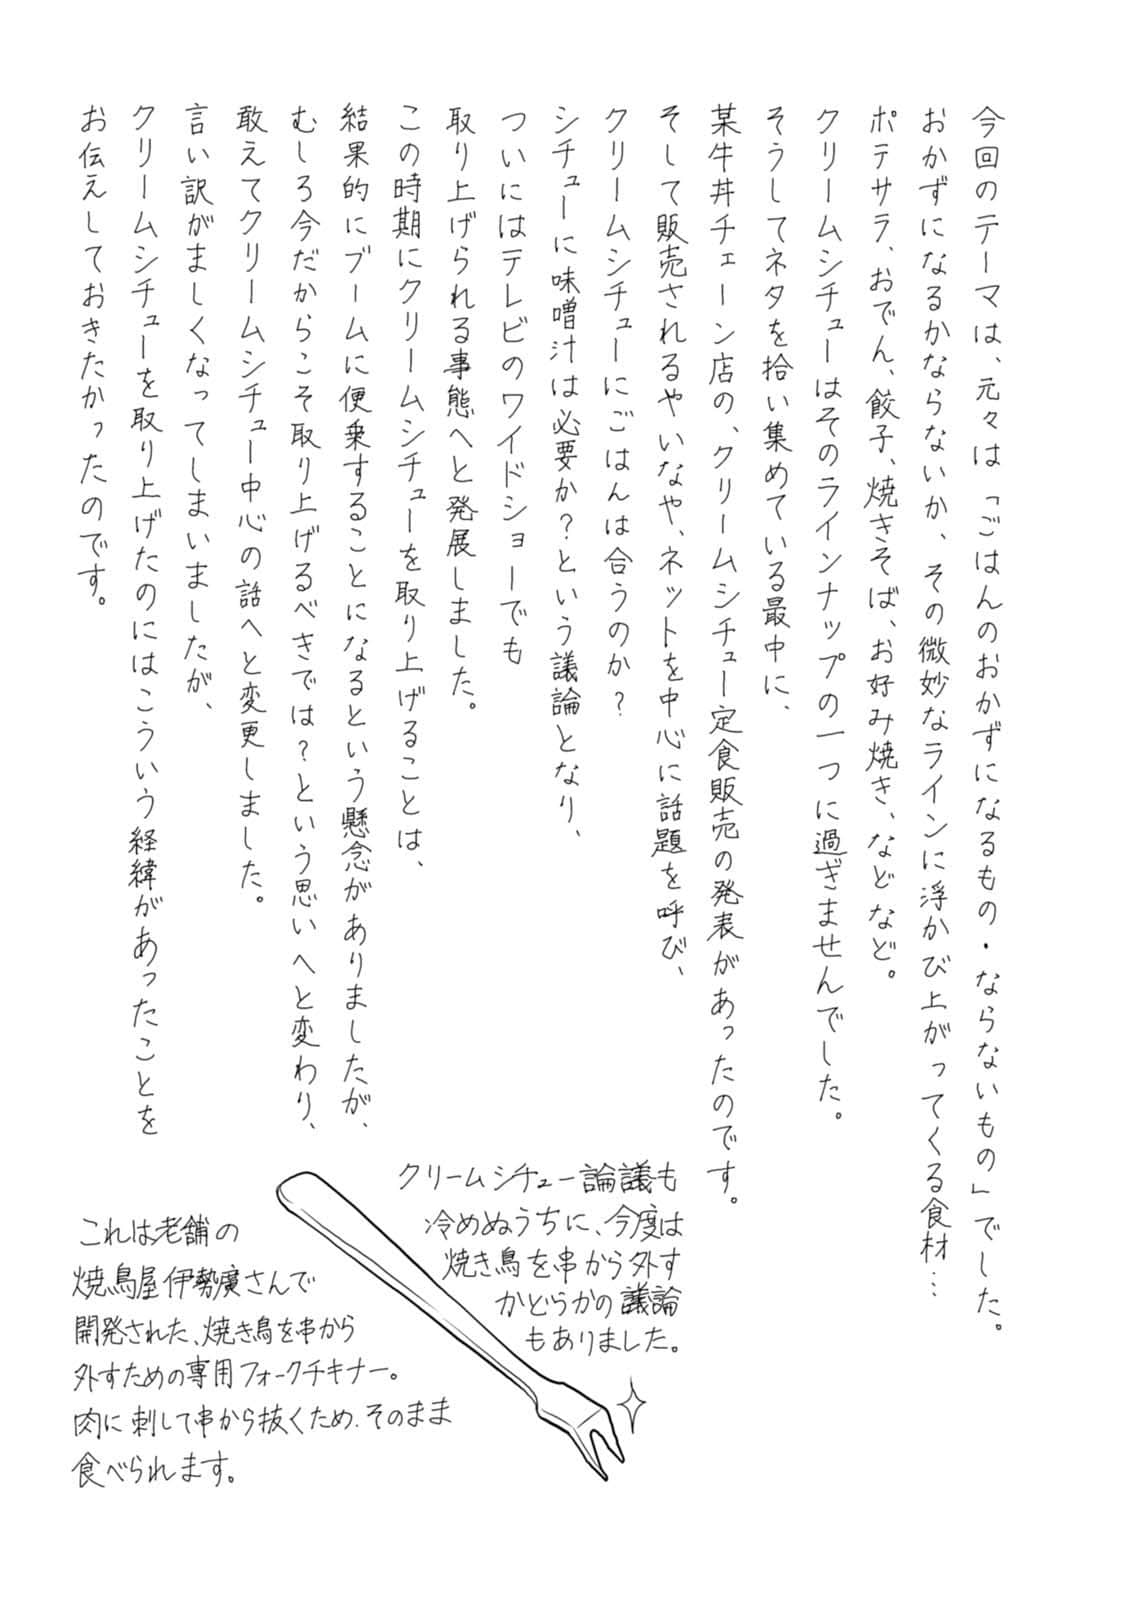 今回のテーマは、元々は「ごはんのおかずになるもの・ならないもの」でした。
おかずになるかならないか、その微妙なラインに浮かび上がってくる食材…
ポテサラ、おでん、餃子、焼きそば、お好み焼き、などなど。
クリームシチューはそのラインナップの一つに過ぎませんでした。
そうしてネタを拾い集めている最中に、
某牛丼チェーン店の、クリームシチュー定食販売の発表があったのです。
そして販売されるやいなや、ネットを中心に話題を呼び、
クリームシチューにごはんは合うのか？
シチューに味噌汁は必要か？という議論となり、
ついにはテレビのワイドショーでも
取り上げられる事態へと発展しました。
この時期にクリームシチューを取り上げることは、
結果的にブームに便乗することになるという懸念がありましたが、
むしろ今だからこそ取り上げるべきでは？という思いへと変わり、
敢えてクリームシチュー中心の話へと変更しました。
言い訳がましくなってしまいましたが、
クリームシチューを取り上げたのにはこういう経緯があったことを
お伝えしておきたかったのです。
クリームシチュー論議も
冷めぬうちに、今度は
焼き鳥を串から外す
かどうかの議論
もありました。
これは老舗の
焼鳥屋伊勢廣さんで
開発された、焼き鳥を串から
外すための専用フォークチキナー。
肉に刺して串から抜くため、そのまま
食べられます。